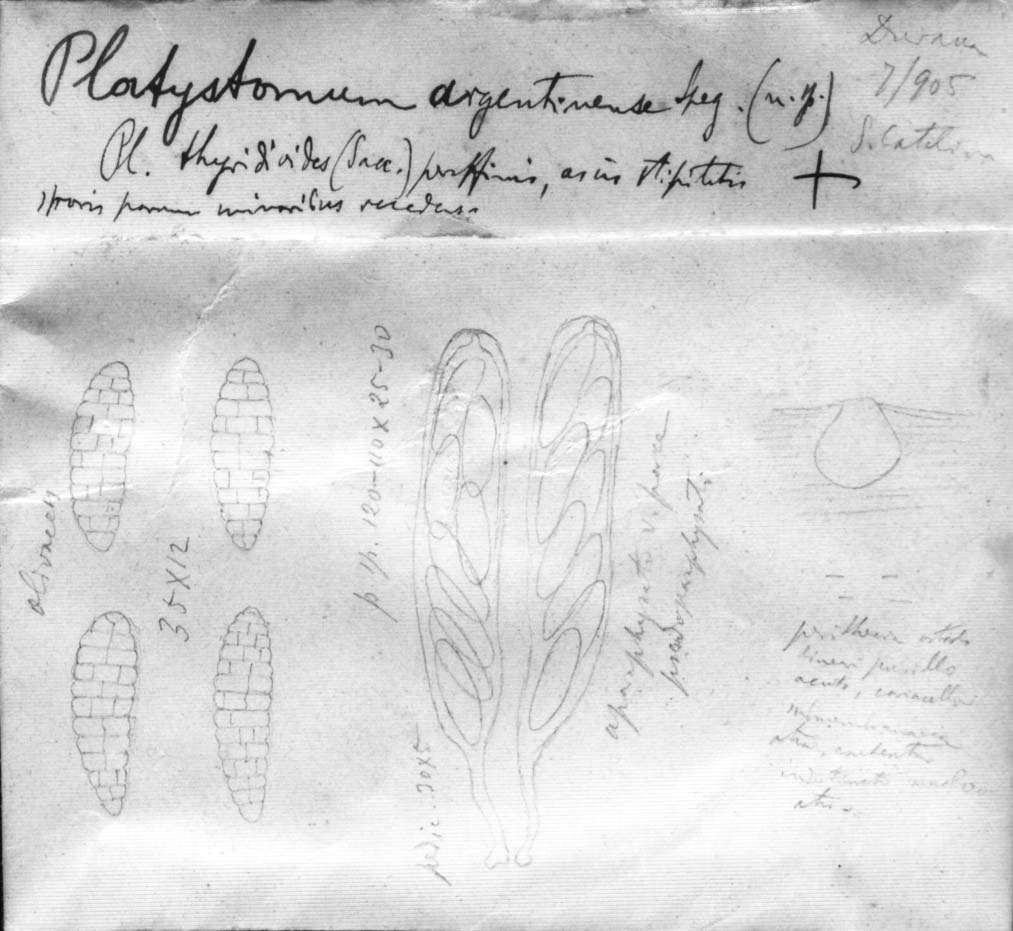 Platystomum argentinense Speg. (n. sp.)
Pl. thyridioides (Sacc.) peraffinis, ascis stipitatis
sporis parum minoribus recedens
Duraua
7/905
S. Catelina
olivaceis
35X12
p. sp. 120-110 X 25-30
pedic. 30X5
aparaphysati v. parce
pseudoparaphysati
perithecia ostiolo
lineari pusillo
acuto,
membranacea
atra, contextu
indistincto
atro.